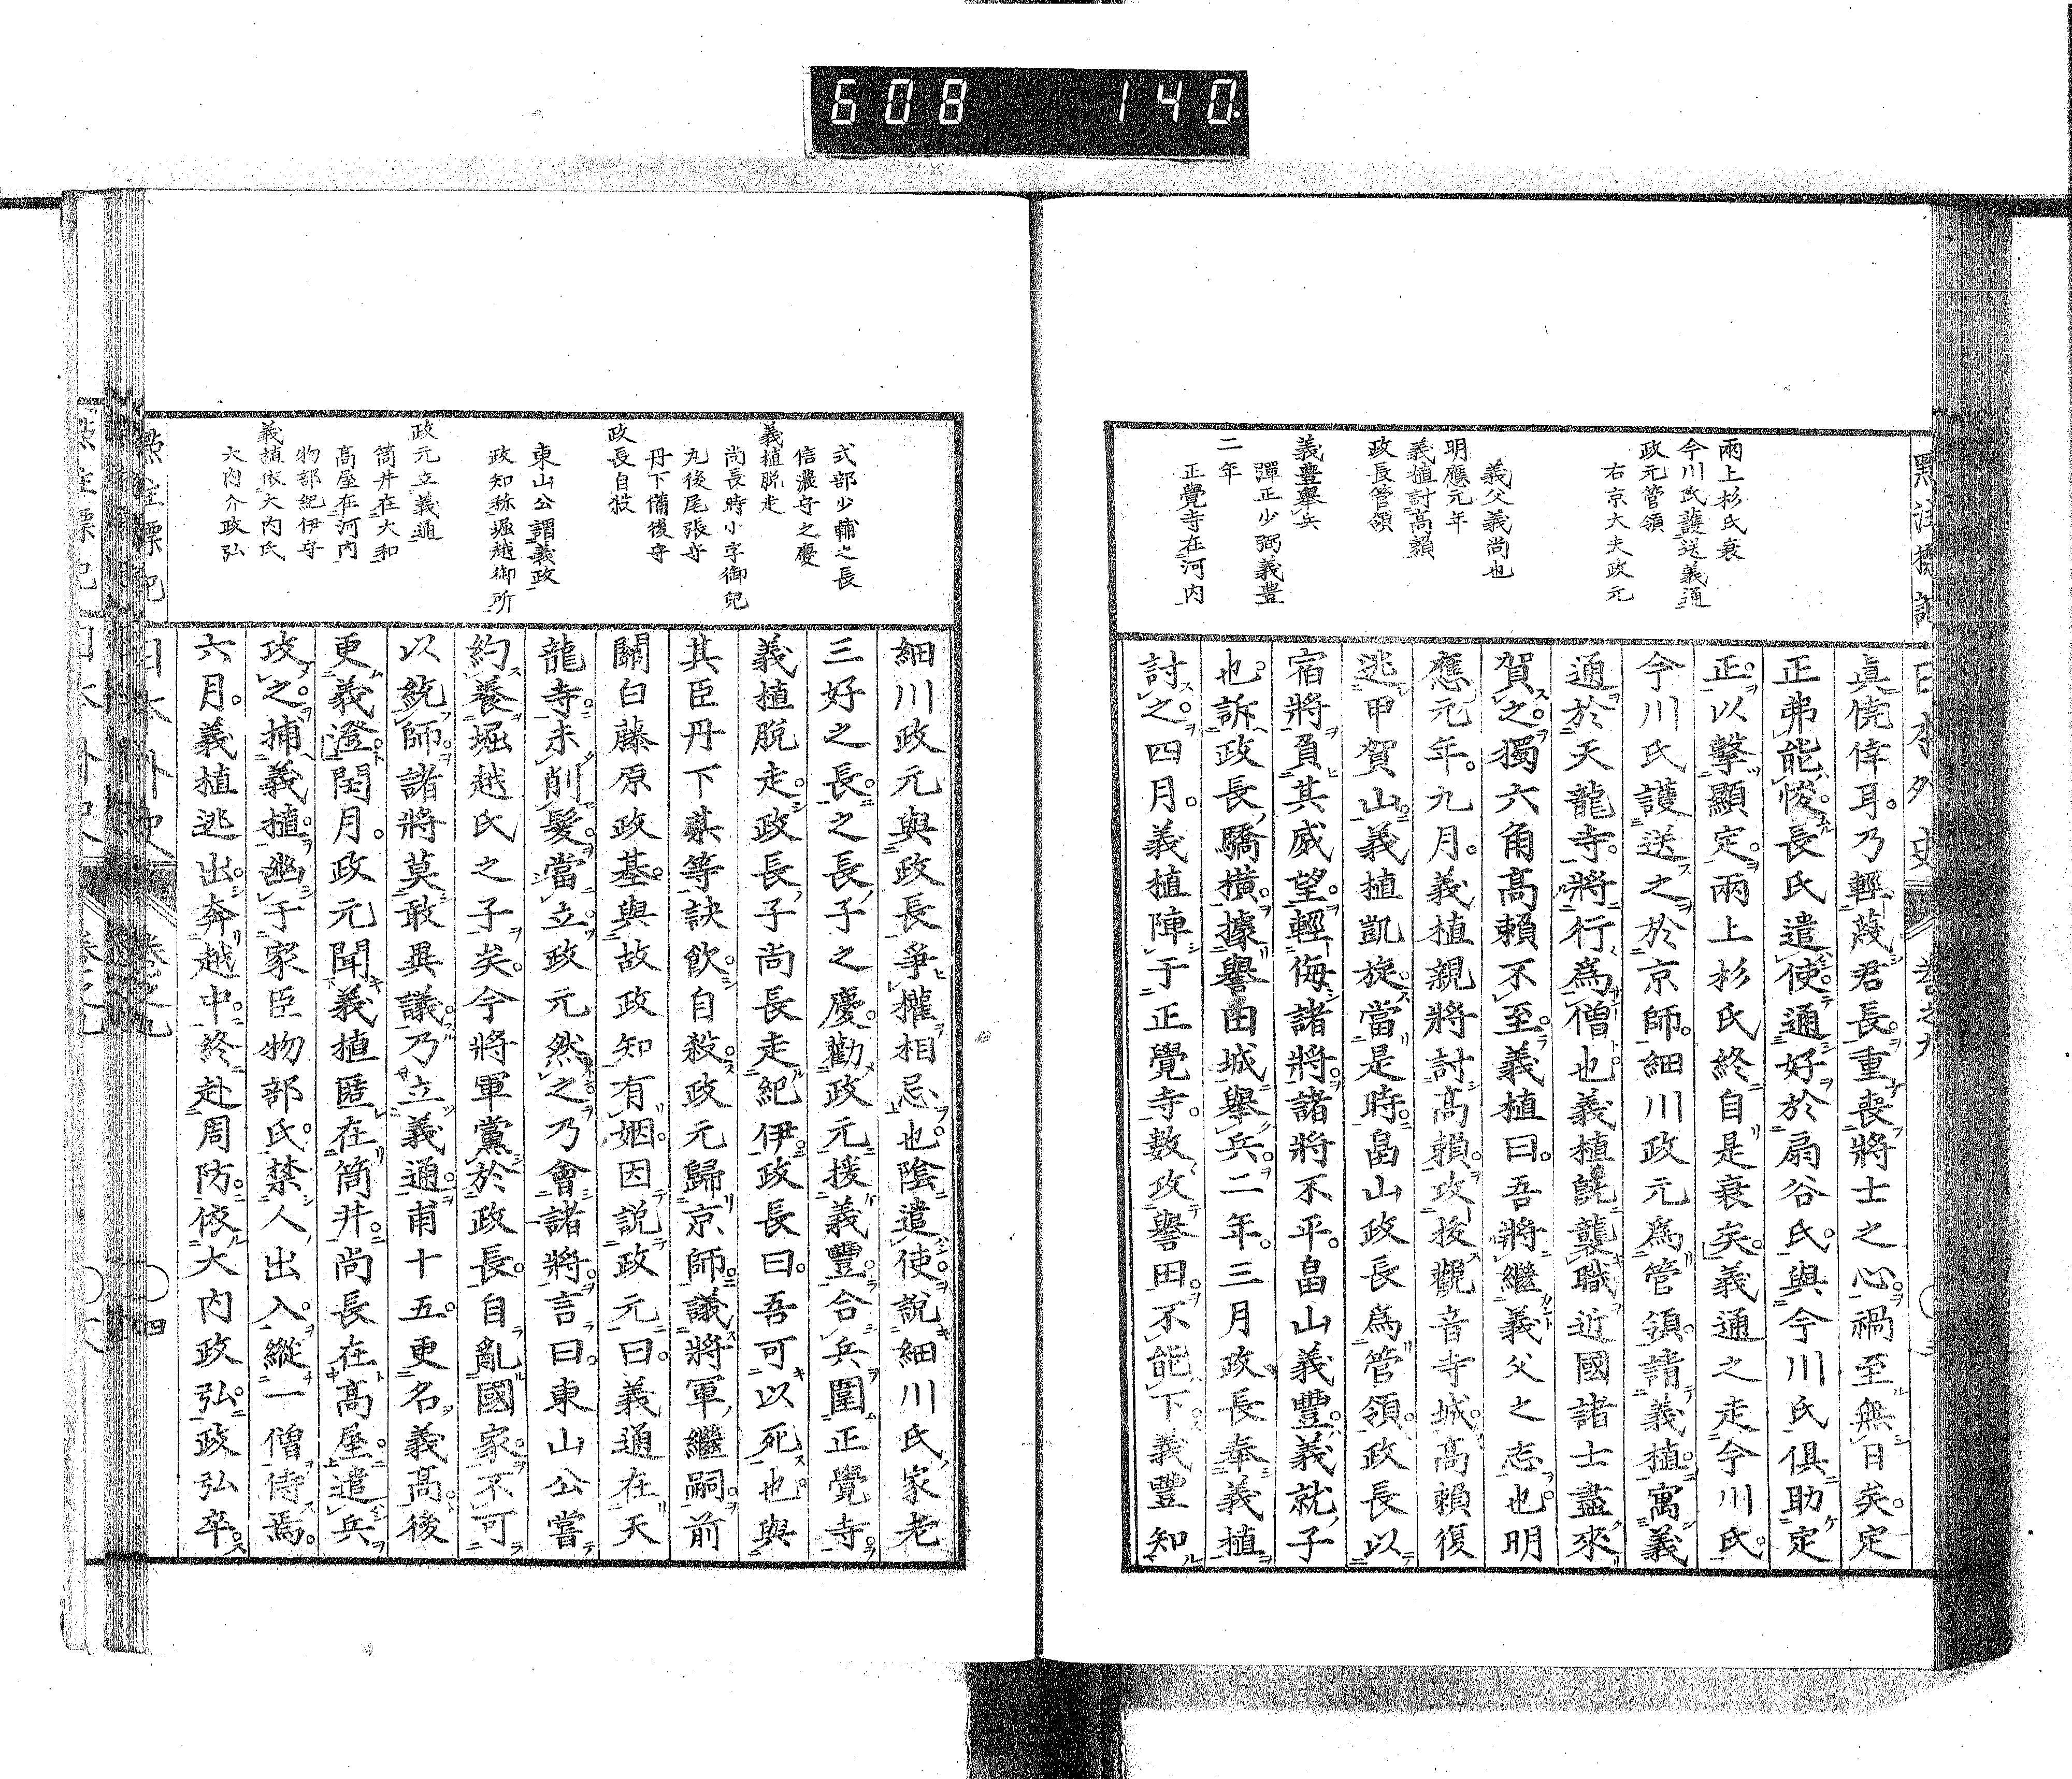 608 140
兩上杉氏衰
今川氏護送義通
政元管領
右京大夫政元
義父義尚也
明應元年
義植討高賴
政長管領
義豐擧兵
彈正少弼義豐
二年
正覺寺在河内
眞僥倖耳乃輕蔑君長重喪將士之心禍至無日矣定
正弗能悛長氏遣使通好於扇谷氏與今川氏俱助定
正以擊顯定兩上杉氏終自是衰矣義通之走今川氏
今川氏護送之於京師細川政元爲管領請義植寓義
通於天龍寺將行爲僧也義植既襲職近國諸士盡來
賀之獨六角高賴不至義植曰吾將繼義父之志也明
應元年九月義植親將討高賴攻拔觀音寺城高賴復
逃甲賀山義植凱旋當是時畠山政長爲管領政長以
宿將負其威望輕侮諸將諸將不平畠山義豐義就子
也訴政長驕橫據譽田城擧兵二年三月政長奉義植
討之四月義植陣于正覺寺數攻譽田不能下義豐知
式部少輔之長
信濃守之慶
義植脱走
尚長時小字御兒
丸後尾張守
丹下備後守
政長自殺
東山公謂義政
政知称堀越御所
政元立義通
筒井在大和
高屋在河内
物部紀伊守
義植依大内氏
大内介政弘
細川政元與政長爭權相忌也陰遣使說細川氏家老
三好之長之長子之慶勸政元援義豐合兵圍正覺寺
義植脱走政長子尚長走紀伊政長曰吾可以死也與
其臣丹下某等訣飮自殺政元歸京師議將軍繼嗣前
關白藤原政基與故政知有姻因説政元曰義通在天
龍寺未削髮當立政元然之乃會諸將言曰東山公嘗
約養堀越氏之子矣今將軍黨於政長自亂國家不可
以統師諸將莫敢異議乃立義通甫十五更名義高後
更義澄閏月政元聞義植匿在筒井尚長在高屋遣兵
攻之捕義植幽于家臣物部氏禁人出入縱一僧侍焉
六月義植逃出奔越中終赴周防依大内政弘政弘卒